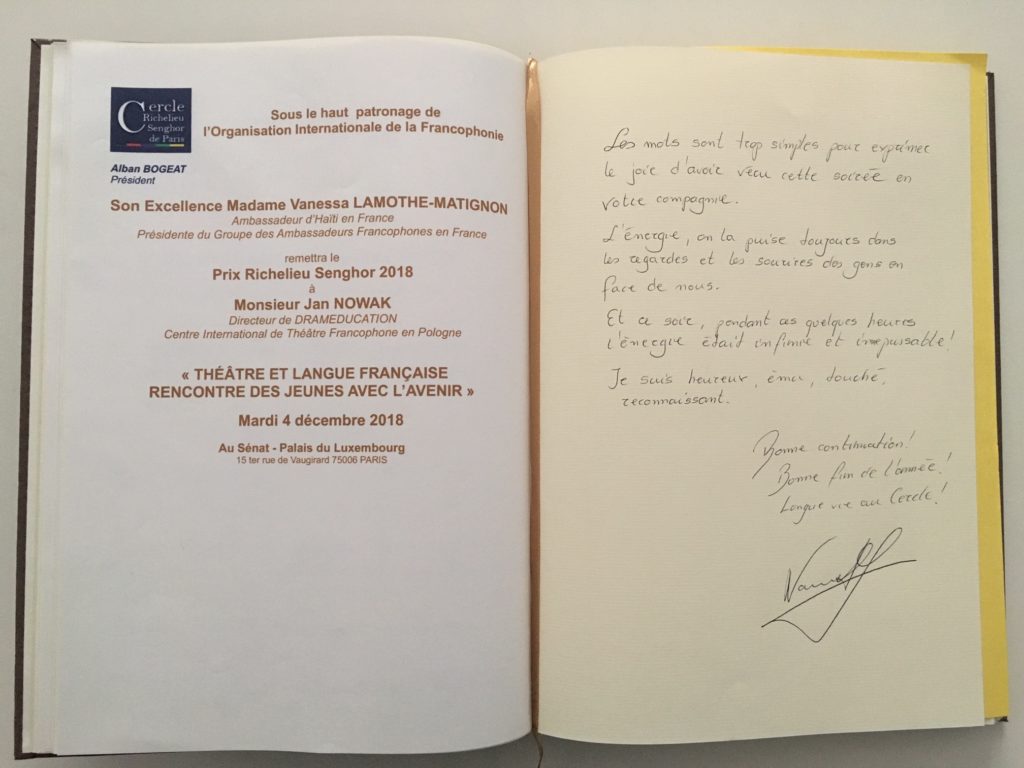 Cercle
Richelieu
Senghor
de Paris
Sous le haut patronage de
l'Organisation Internationale de la Francophonie
Alban BOGEAT
Président
Son Excellence Madame Vanessa LAMOTHE-MATIGNON
Ambassadeur d'Haïti en France
Présidente du Groupe des Ambassadeurs Francophones en France
remettra le
Prix Richelieu Senghor 2018
à
Monsieur Jan NOWAK
Directeur de DRAMEDUCATION
Centre International de Théâtre Francophone en Pologne
« THÉÂTRE ET LANGUE FRANÇAISE
RENCONTRE DES JEUNES AVEC L'AVENIR »
Mardi 4 décembre 2018
Au Sénat - Palais du Luxembourg
15 ter rue de Vaugirard 75006 PARIS
Les mots sont trop simples pour exprimer
le joie d'avoir vécu cette soirée en
votre compagnie.
L'énergie, on la puise toujours dans
les regardes et les sourires des gens en
face de nous.
Et ce soir, pendant ces quelques heures
l'énergie était infinie et inepuisable!
Je suis heureux, ému, touché,
reconnaissant.
Bonne continuation!
Bonne fin de l'année!
Longue vie au Cercle!